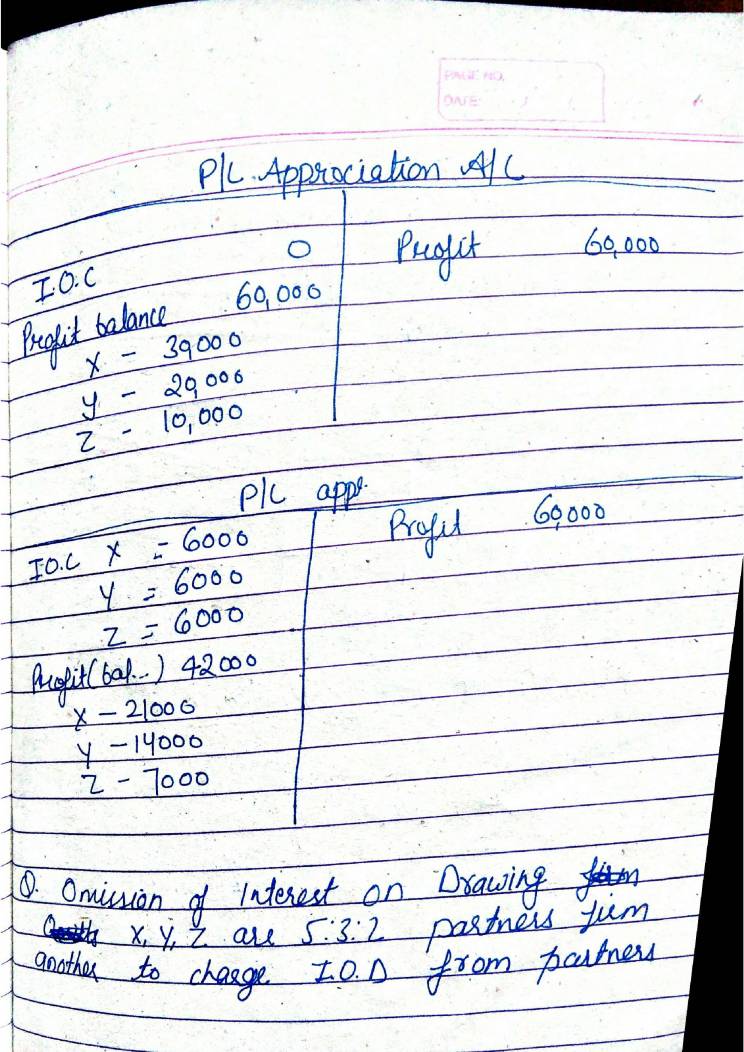 PAGE NO.
DATE:
P/L Approciation A/C
I.O.C 0 Profit 60,000
Profit balance 60,000
X - 39000
y - 20,000
Z - 10,000
P/L appr.
I.O.C X = 6000 Profit 60,000
Y = 6000
Z = 6000
Profit(bal...) 42000
X - 21000
Y - 14000
Z - 7000
Q. Omission of Interest on Drawing
X, Y, Z are 5:3:2 partners firm
another to charge I.O.D from partners